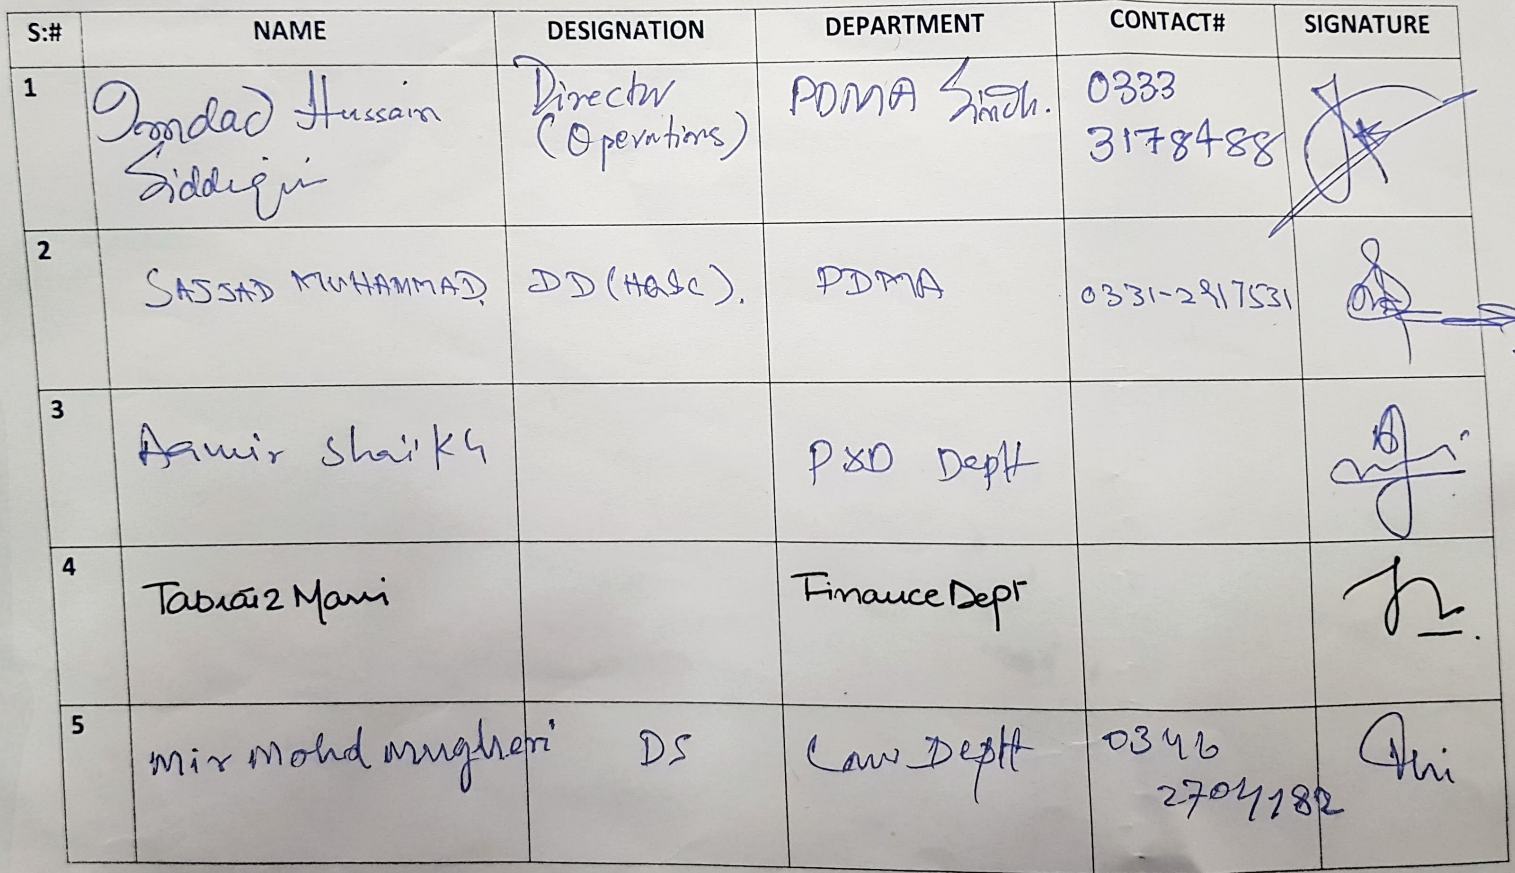 S:# NAME DESIGNATION DEPARTMENT CONTACT# SIGNATURE
1 Imdad Hussain Director PDMA Sindh. 0333
Siddiqui (Operations) 3178488
2 SAJJAD MUHAMMAD. DD (H&SC). PDMA 0331-2917531
3 Aamir Shaikh P&D Deptt
4 Tabraiz Marri Finance Dept
5 Mir Mohd mugheri DS Law Deptt 0346
2704182